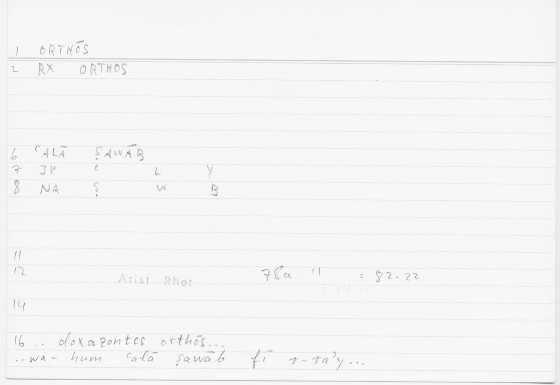 1 ORTHŌS
2 RX ORTHOS
6 ʿALĀ ṢAWĀB
7 JP ʿ L Y
8 NA Ṣ W B
11
12 Arist Rhet 78a 11 : 82.22
14
16 .. doxazontes orthōs...
..wa-hum ʿalā ṣawāb fī r-ra'y...